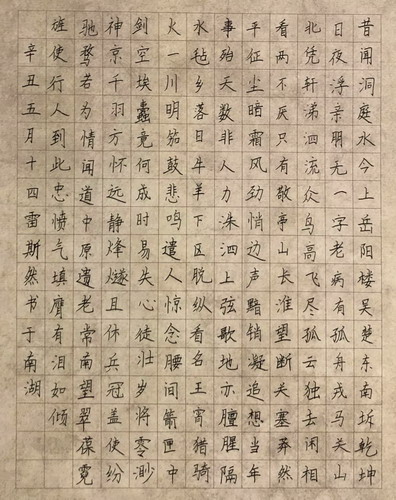 昔闻洞庭水今上岳阳楼吴楚东南坼乾坤
日夜浮亲朋无一字老病有孤舟戎马关山
北凭轩涕泗流众鸟高飞尽孤云独去闲相
看两不厌只有敬亭山长淮望断关塞莽然
平征尘暗霜风劲悄边声黯销凝追想当年
事殆天数非人力洙泗上弦歌地亦膻腥隔
水毡乡落日牛羊下区脱纵看名王宵猎骑
火一川明笳鼓悲鸣遣人惊念腰间箭匣中
剑空埃蠹竟何成时易失心徒壮岁将零渺
神京千羽方怀远静烽燧且休兵冠盖使纷
驰骛若为情闻道中原遗老常南望翠葆霓
旌使行人到此忠愤气填膺有泪如倾
辛丑五月十四雷斯然书于南湖